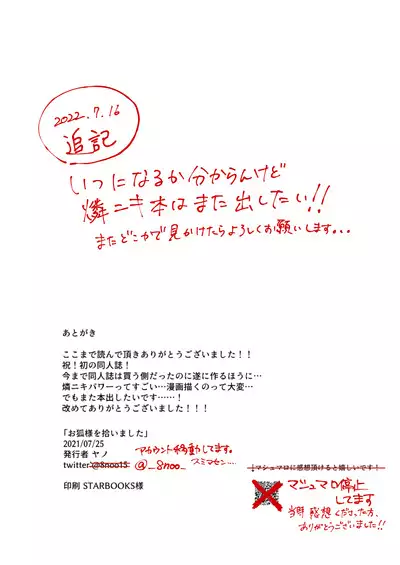 2022.7.16
追記
いつになるか分からんけど
燐ニキ本はまた出したい!!
またどこかで見かけたらよろしくお願いします...
あとがき
ここまで読んで頂きありがとうございました！！
祝！初の同人誌！
今まで同人誌は買う側だったのに遂に作るほうに…
燐ニキパワーってすごい…漫画描くのって大変…
でもまた本出したいです……！
改めてありがとうございました！！！
「お狐様を拾いました」
2021/07/25
発行者 ヤノ
アカウント移動してます。
twitter:@8noo15
@_8noo_
スミマセン...
印刷 STARBOOKS様
↓マシュマロに感想頂けると嬉しいです！
マシュマロ停止
してます
当時感想くださった方、
ありがとうございました!!